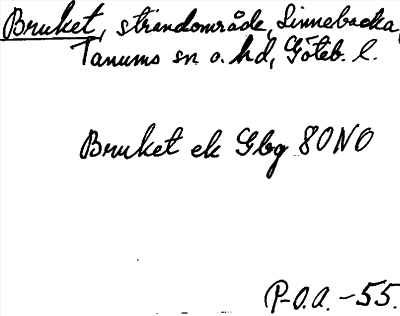 Bruket, strandområde, Linnebacka,
Tanums sn o. hd, Göteb. l.
Bruket ek Gbg 80NO
P-O.A. -55.